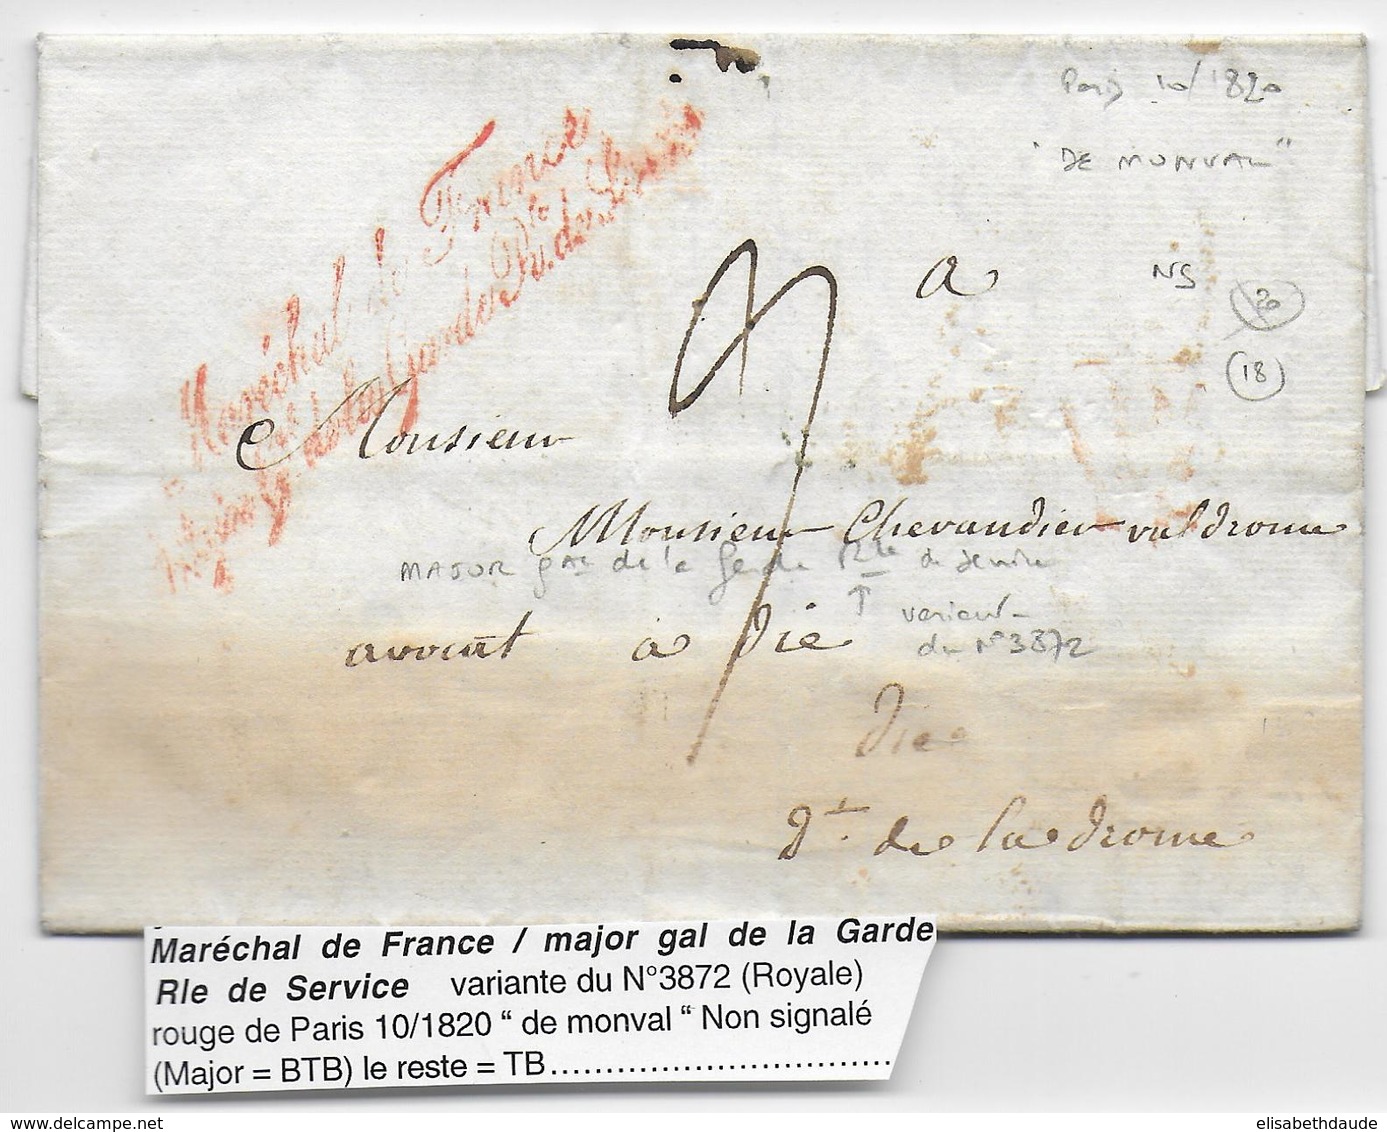 Paris 10/1820
"DE MONVAL"
Maréchal de France
Major Gal de la Garde Rle de Service
a
NS
20
18
Monsieur
Monsieur Chevandier valdrome
MAJOR gal de la Garde Rle de Service
variante
du N°3872
avocat à Die
Die
Dt. de la Drome
Maréchal de France / major gal de la Garde
Rle de Service variante du N°3872 (Royale)
rouge de Paris 10/1820 “ de monval “ Non signalé
(Major = BTB) le reste = TB..................................
www.delcampe.net
elisabethdaude